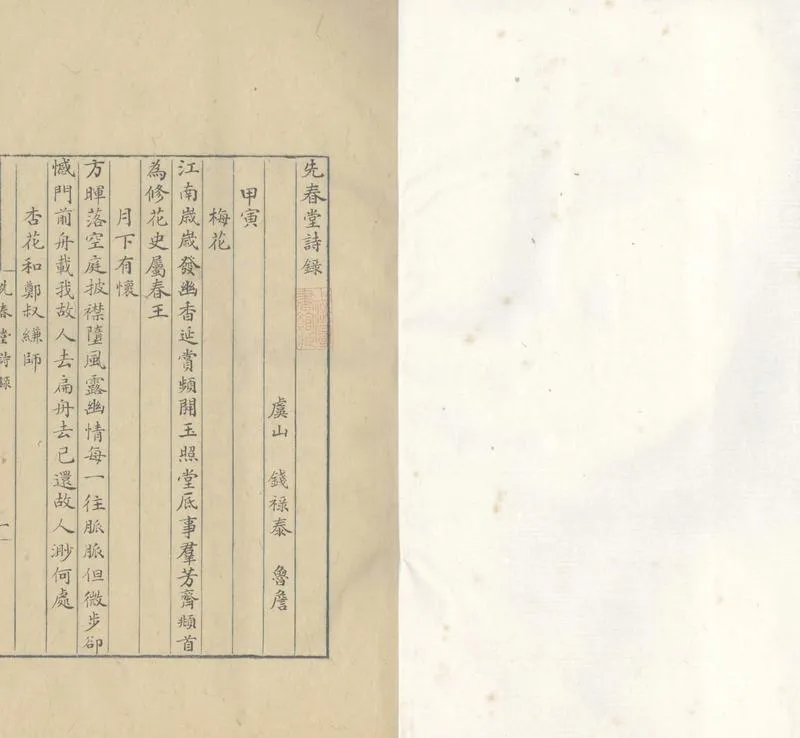 先春堂詩録
虞山 錢祿泰 魯詹
甲寅
梅花
江南嵗嵗發幽香延賞頻開玉照堂底事羣芳齊頫首
為修花史屬春王
月下有懷
方暉落空庭披襟墮風露幽情每一往脈脈但微步卻
憾門前舟載我故人去扁舟去已還故人渺何處
杏花和鄭叔縑師
先春堂詩録
一